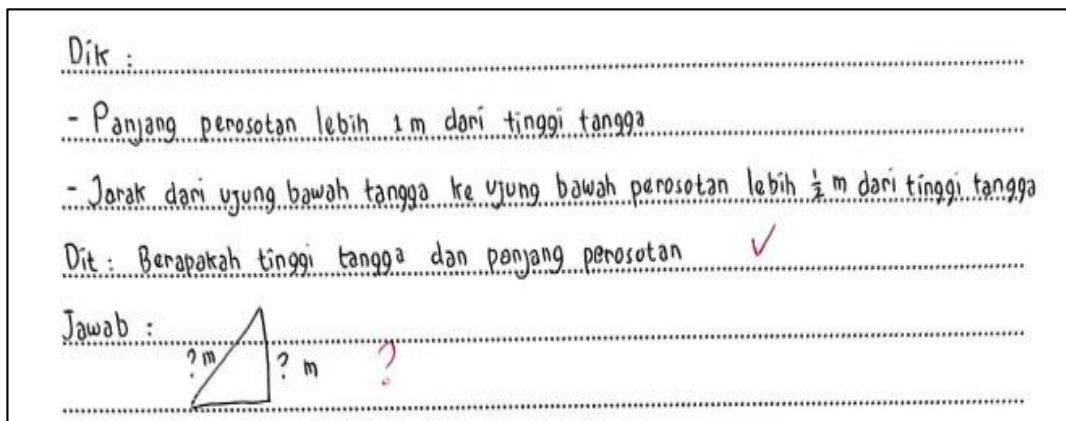 Dik :
- Panjang perosotan lebih 1 m dari tinggi tangga
- Jarak dari ujung bawah tangga ke ujung bawah perosotan lebih ½ m dari tinggi tangga
Dit : Berapakah tinggi tangga dan panjang perosotan
Jawab :
? m ? m ?